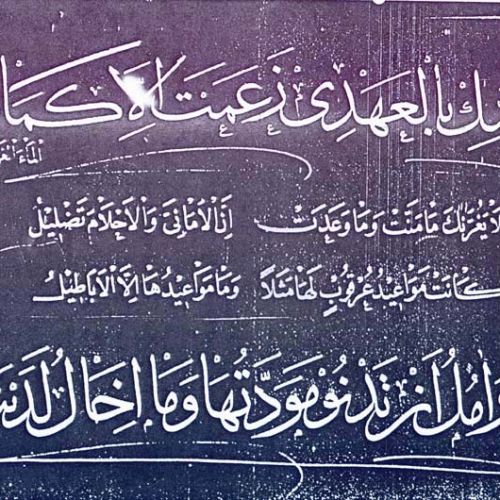 سك بالعهدى زعمت الا كما
الماء الغر
لا يغرنك ما منت وما وعدت ان الامانى والاحلام تضليل
كانت مواعيد عرقوب لها مثلا وما مواعيدها الا الاباطيل
وامل ان تدنو مودتها وما اخال لدينـ